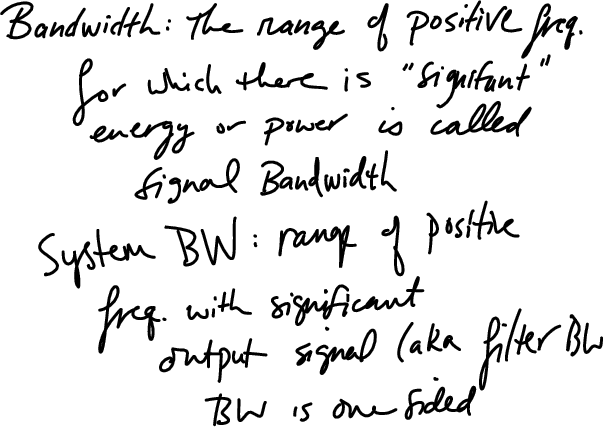 Bandwidth: The range of positive freq.
for which there is "signifant"
energy or power is called
signal Bandwidth
System BW: range of positive
freq. with significant
output signal (aka filter BW
BW is one sided